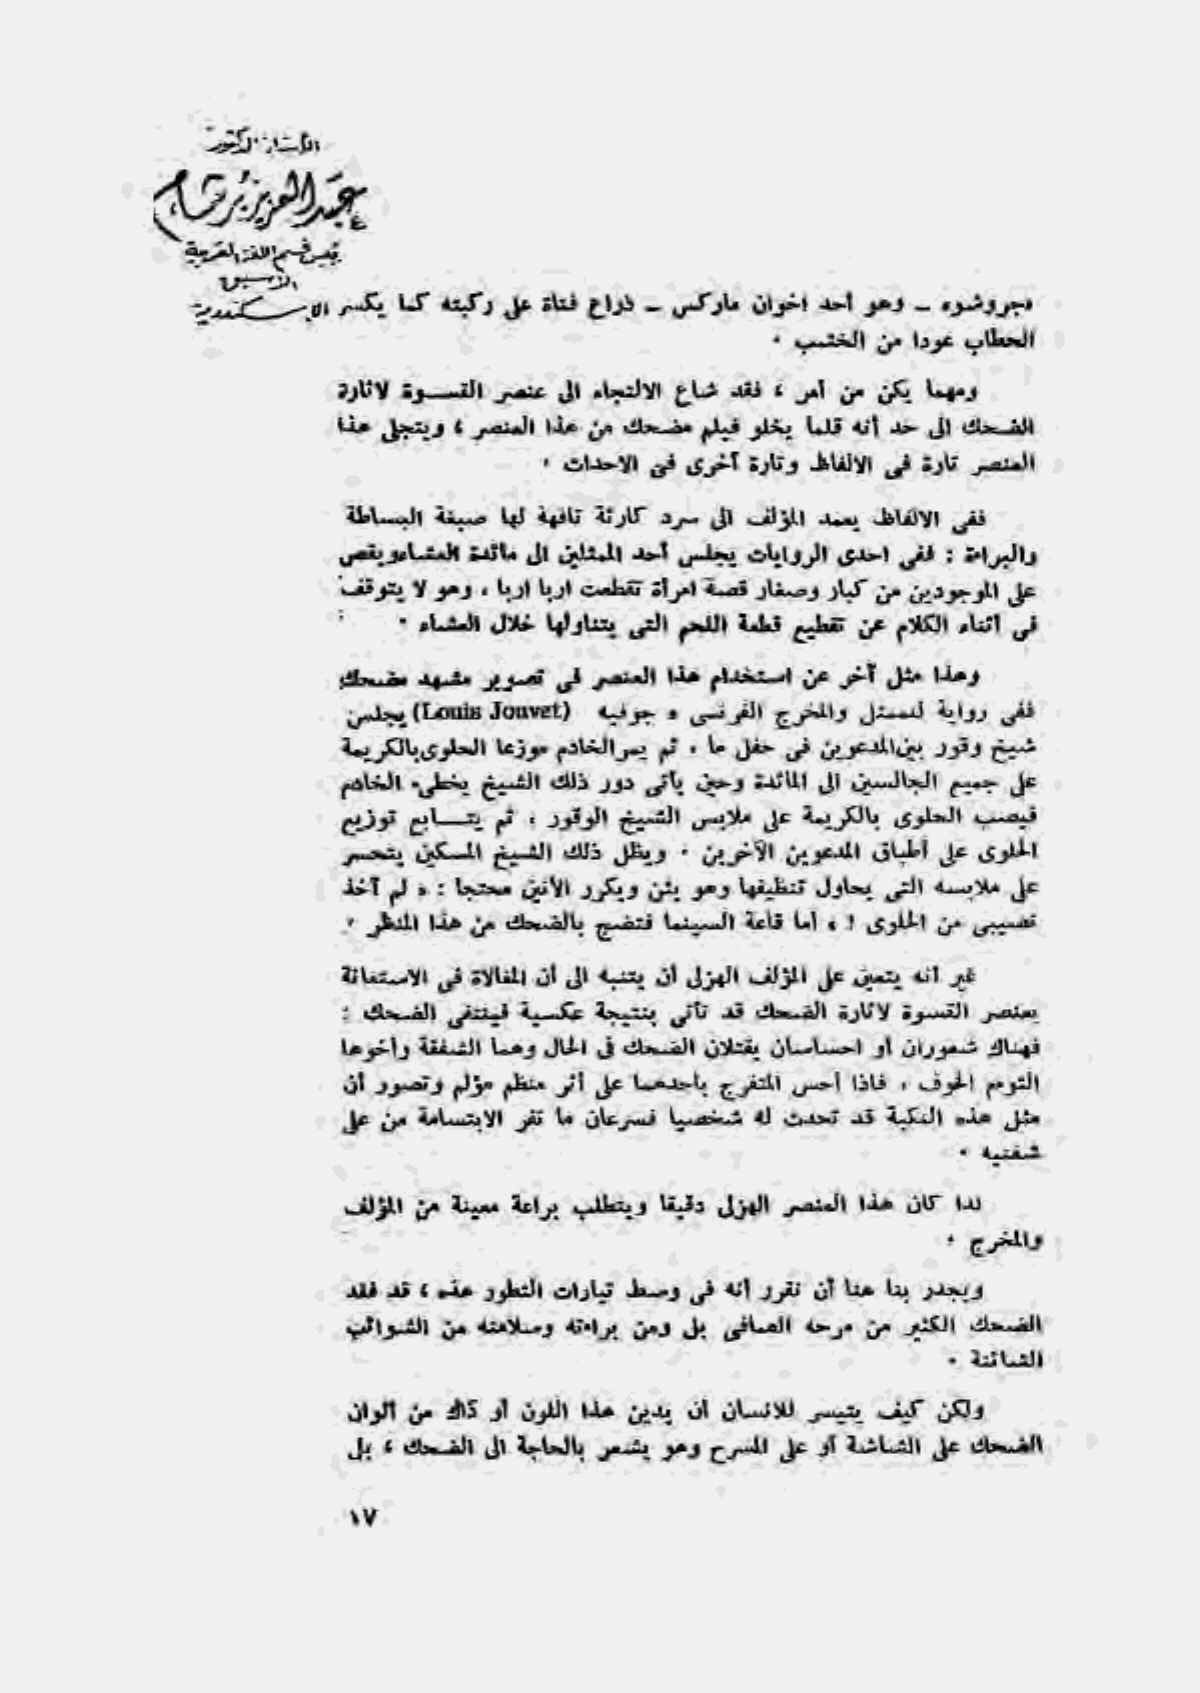 الأستاذ الدكتور
عبد العزيز برشام
رئيس قسم اللغة العربية
الأسبق
الإسكندرية
«جروشو» ــ وهو أحد اخوان ماركس ــ ذراع فتاة على ركبته كما يكسر
الحطاب عودا من الخشب ٠
ومهما يكن من أمر ، فقد شاع الالتجاء الى عنصر القســوة لاثارة
الضحك الى حد أنه قلما يخلو فيلم مضحك من هذا العنصر ، ويتجلى هذا
العنصر تارة فى الالفاظ وتارة أخرى فى الاحداث ٠
ففى الالفاظ يعمد المؤلف الى سرد كارثة تافهة لها صبغة البساطة
والبراءة : ففى احدى الروايات يجلس أحد الممثلين الى مائدة العشاء ويقص
على الموجودين من كبار وصغار قصة امرأة تقطعت اربا اربا ، وهو لا يتوقف
فى أثناء الكلام عن تقطيع قطعة اللحم التى يتناولها خلال العشاء ٠
وهذا مثل آخر عن استخدام هذا العنصر فى تصوير مشهد مضحك
ففى رواية للممثل والمخرج الفرنسى « جوفيه (Louis Jouvet) يجلس
شيخ وقور بين المدعوين فى حفل ما ، ثم يمر الخادم موزعا الحلوى بالكريمة
على جميع الجالسين الى المائدة وحين يأتى دور ذلك الشيخ يخطىء الخادم
فيصب الحلوى بالكريمة على ملابس الشيخ الوقور ، ثم يتـــابع توزيع
الحلوى على أطباق المدعوين الآخرين ٠ ويظل ذلك الشيخ المسكين يتحسر
على ملابسه التى يحاول تنظيفها وهو يئن ويكرر الأنين محتجا : « لم آخذ
نصيبى من الحلوى ! » أما قاعة السينما فتضج بالضحك من هذا المنظر ٠
غير أنه يتعين على المؤلف الهزلى أن يتنبه الى أن المغالاة فى الاستعانة
بعنصر القسوة لاثارة الضحك قد تأتى بنتيجة عكسية فينتفى الضحك :
فهناك شعوران أو احساسان يقتلان الضحك فى الحال وهما الشفقة وأخوها
التوءم الخوف ، فاذا أحس المتفرج بأحدهما على أثر منظر مؤلم وتصور أن
مثل هذه النكبة قد تحدث له شخصيا فسرعان ما تفر الابتسامة من على
شفتيه ٠
لذا كان هذا العنصر الهزلى دقيقا ويتطلب براعة معينة من المؤلف
والمخرج ٠
ويجدر بنا هنا أن نقرر أنه فى وسط تيارات التطور هذه ، قد فقد
الضحك الكثير من مرحه الصافى بل ومن براءته وسلامته من الشوائب
الشائنة ٠
ولكن كيف يتيسر للانسان أن يدين هذا اللون أو ذاك من ألوان
الضحك على الشاشة أو على المسرح وهو يشعر بالحاجة الى الضحك ، بل
١٧